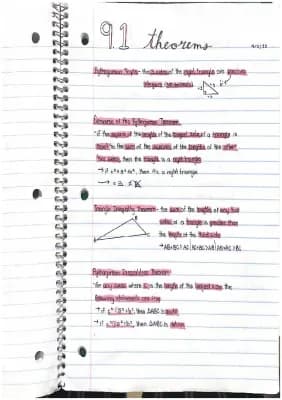 9.1 theorems
Pythagorean Triple - the sides of the right triangle are positive
integers (no decimals)
Converse of the Pythagorean Theorem
- if the square of the length of the longest side of a triangle is
equal to the sum of the squares of the lengths of the other
two sides, then the triangle is a right triangle
→ if c² = a² + b², then it's a right triangle
Triangle Inequality Theorem - the sum of the lengths of any two
sides of a triangle is greater than
the length of the third side
→ AB+BC>AC
Pythagorean Inequalities Theorem
- for any
where
is the length of the longest side, the
following statements are true
→ if c² < a² + b², then △ABC is acute
→ if c² > a² + b², then △ABC is obtuse